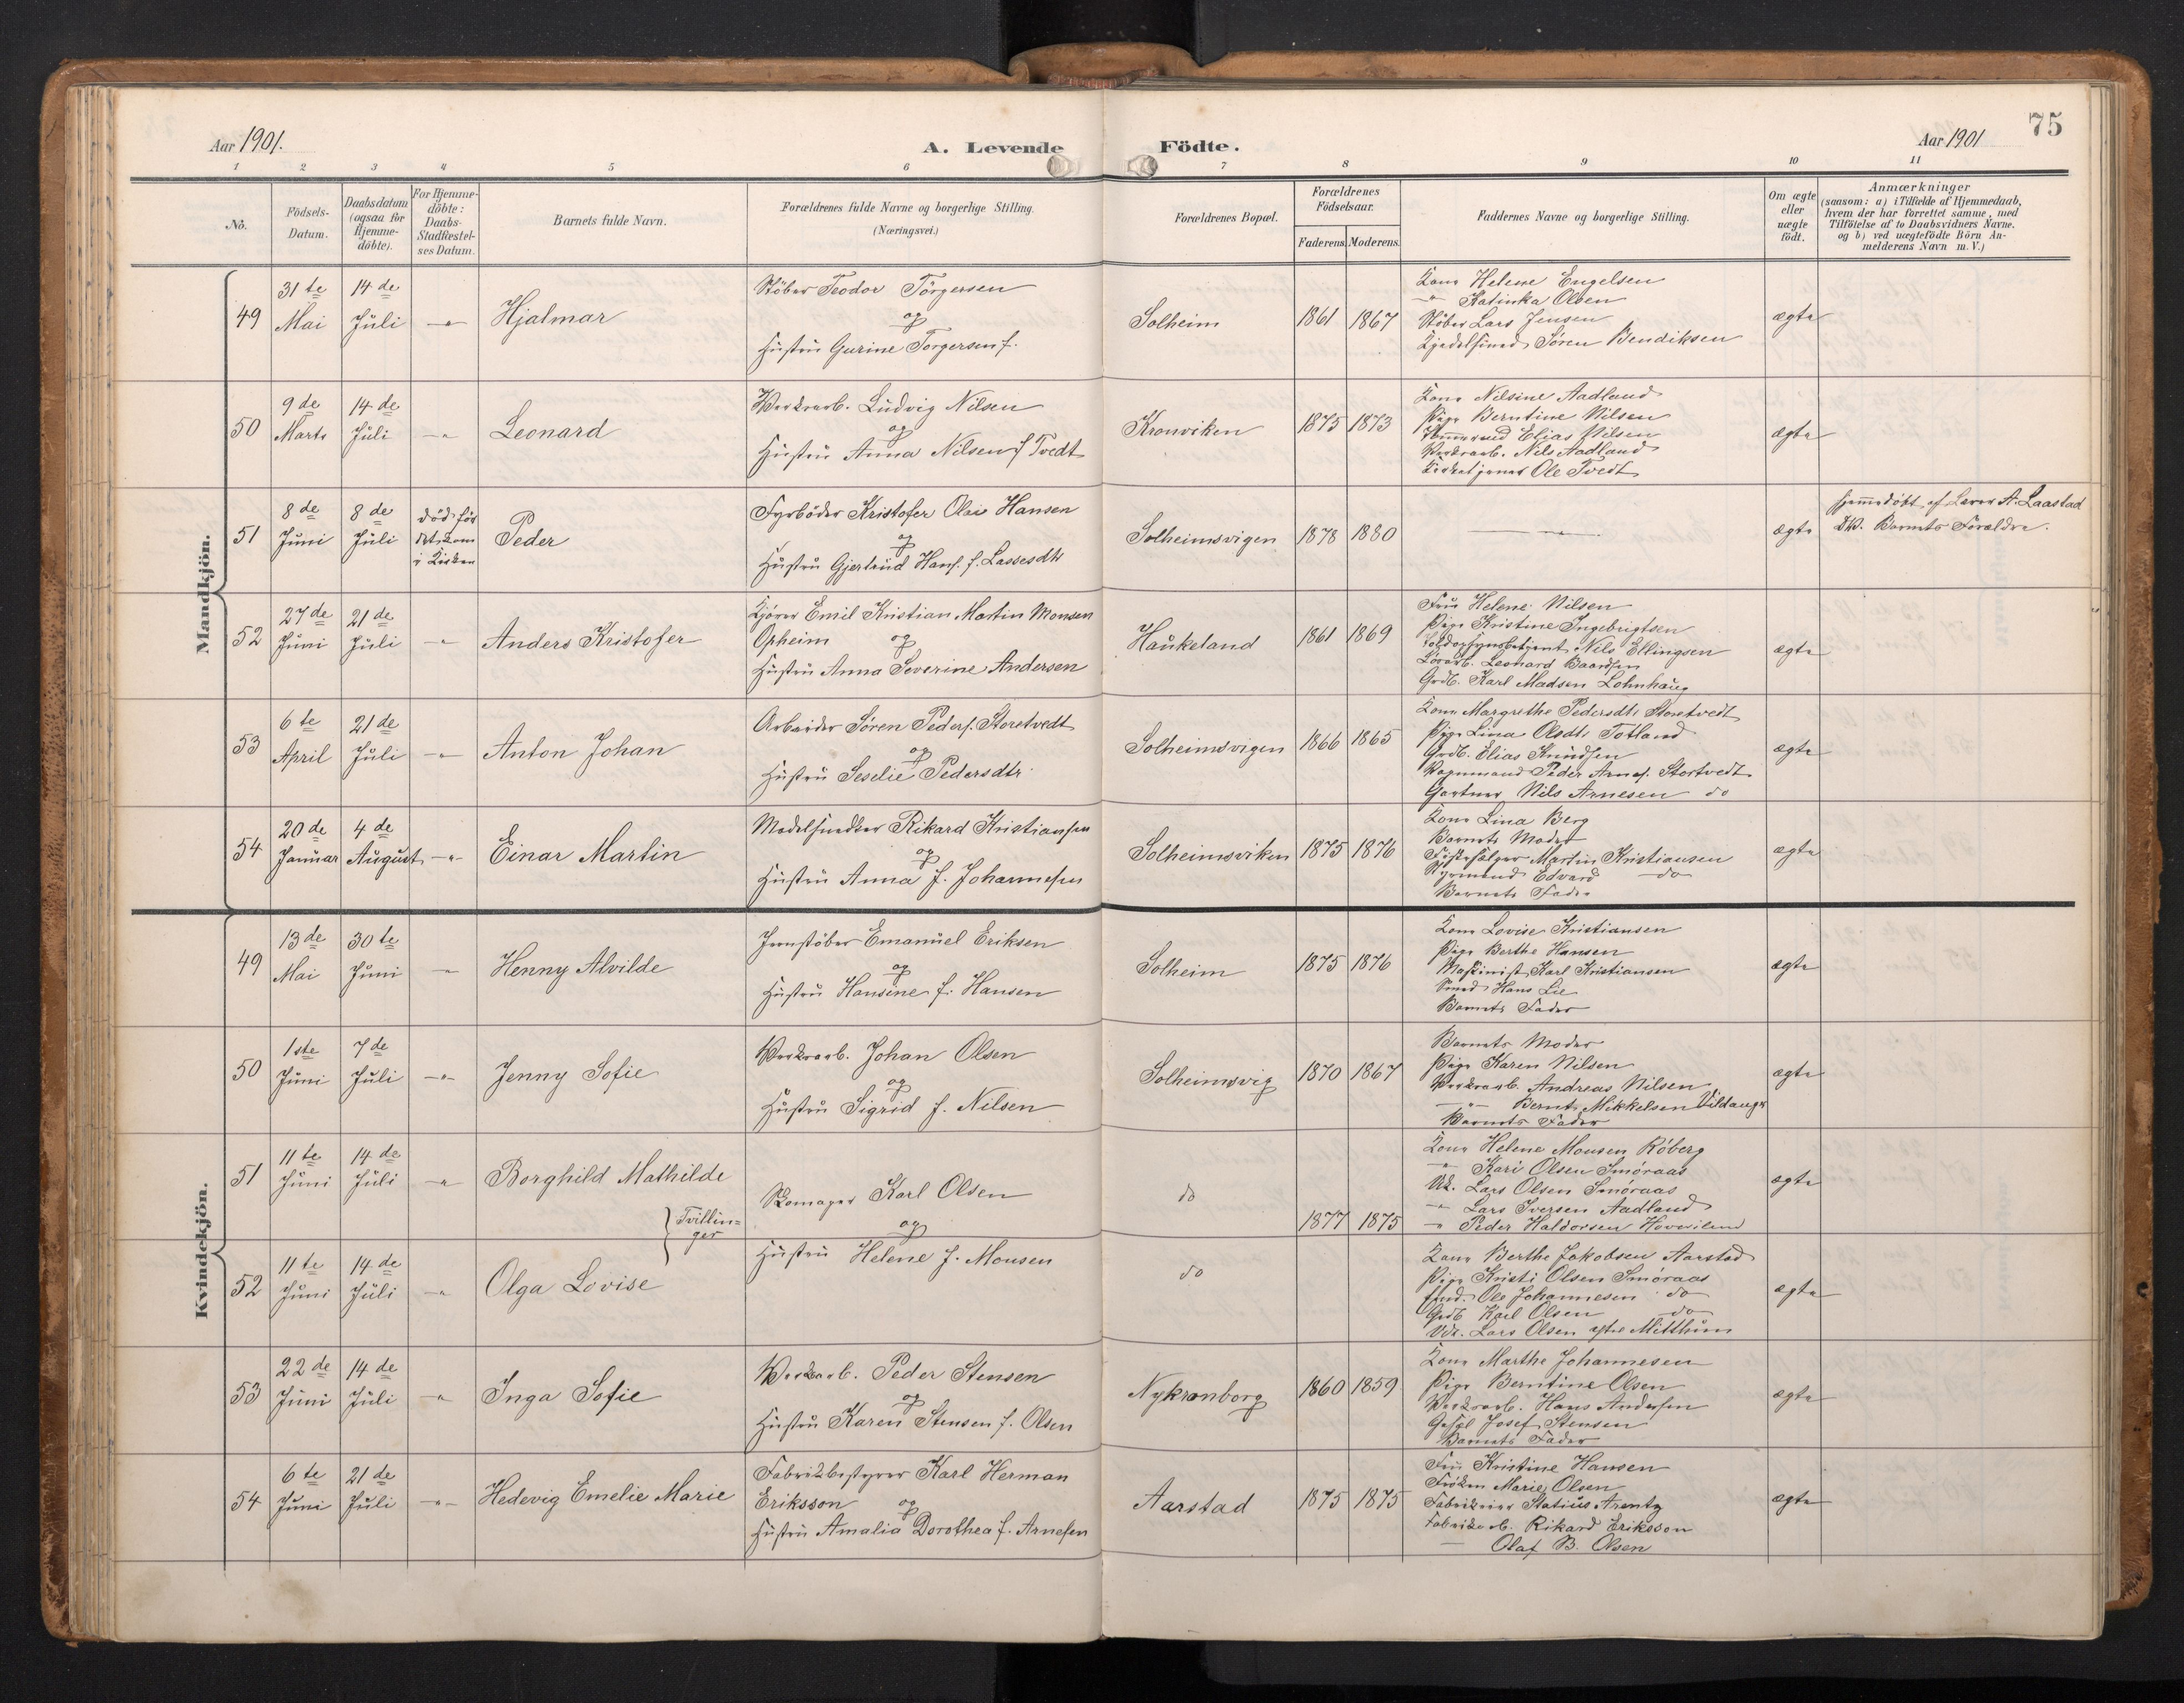 Aar 1901.
A. Levende Födte.
Aar 1901
75
1 2 3 4 5 6 7 8 9 10 11
No.
Födsels-Datum.
Daabsdatum (ogsaa for Hjemme-döbte).
For Hjemme-döbte: Daabs-Stadfæstel-ses Datum.
Barnets fulde Navn.
Forældrenes fulde Navne og borgerlige Stilling. (Næringsvei.)
Forældrenes Bopæl.
Forældrenes Födselsaar.
Faderens. Moderens.
Faddernes Navne og borgerlige Stilling.
Om ægte eller uægte födt.
Anmærkninger
(saasom: a) i Tilfælde af Hjemmedaab, hvem der har forrettet samme, med Tilföielse af to Daabsvidners Navne. og b) ved uægtefödte Börn An-melderens Navn m. V.)
Mandkjön.
49
31te Mai
14de Juli
Hjalmar
Støber Teodor Törgersen
og
Hustru Gurine Torgersen f.
Solheim
1861 1867
Kone Helene Engelsen
" Katinka Olsen
Støber Lars Jensen
Kjedelsmed Sören Bendiksen
ægte
50
9de Marts
14de Juli
Leonard
Værksarb. Ludvig Nilsen
og
Hustru Anna Nilsen f Tvedt
Kronviken
1875 1873
Kone Nilsine Aadland
Pige Berntine Nilsen
Elias Nilsen
Værksarb. Nils Aadland
Ole Tvedt
ægte
51
8de Juni
8de Juli
død før det kom i Kirken
Peder
Fyrböder Kristofer Olai Hansen
og
Hustru Gjertrud Hans. f. Lassesdtr
Solheimsvigen
1878 1880
ægte
Hjemmedöbt af Lærer A. Laastad
DV. Barnets Forældre.
52
27de Juni
21de Juli
Anders Kristofer
Kjører Emil Kristian Martin Monsen
Opheim og
Hustru Anna Severine Andersen
Haukeland
1861 1869
Fru Helene Nilsen
Pige Kristine Ingebrigtsen
Nils Ellingsen
Leonard Baardsen
Grdb. Karl Madsen Lohnhaug
ægte
53
6te April
21de Juli
Anton Johan
Arbeider Sören Peders. Storetvedt
og
Hustru Seselie Pedersdtr.
Solheimsvigen
1866 1865
Kone Margrethe Pedersdtr Storetvedt
Pige Lina Olsdtr Totland
Grdb. Elias Knudsen
Vognmand Peder Arnes. Stortvedt
Gartner Nils Arnesen do
ægte
54
20de Januar
4de August
Einar Martin
Modelsnedker Rikard Kristiansen
og
Hustru Anna f. Johannesen
Solheimsviken
1875 1876
Kone Lina Berg
Barnets Moder
Martin Kristiansen
Styrmand Edvard do
Barnets Fader
ægte
Kvindekjön.
49
13de Mai
30te Juni
Henny Alvilde
Jernstöber Emanuel Eriksen
og
Hustru Hansine f. Hansen
Solheim
1875 1876
Kone Lovise Kristiansen
Pige Berthe Hansen
Maskinist Karl Kristiansen
Smed Hans Lie
Barnets Fader
ægte
50
1ste Juni
7de Juli
Jenny Sofie
Værksarb. Johan Olsen
og
Hustru Sigrid f. Nilsen
Solheimsvig
1870 1867
Barnets Moder
Pige Karen Nilsen
Værksarb. Andreas Nilsen
" Bernt Mikkelsen
Barnets Fader
ægte
51
11te Juni
14de Juli
Borghild Mathilde
Tvillin=
ger
Skomager Karl Olsen
og
Hustru Helene f. Monsen
do
1877 1875
Kone Helene Monsen Röberg
" Kari Olsen Smöraas
Uk. Lars Olsen Smöraas
" Lars Iversen Aadland
" Peder Haldorsen
ægte
52
11te Juni
14de Juli
Olga Lovise
do
Kone Berthe Jakobsen Aarstad
Pige Kristi Olsen Smöraas
Ole Johannesen do
Grdb Karl Olsen do
Lars Olsen Midthun
ægte
53
22de Juni
14de Juli
Inga Sofie
Værksarb. Peder Stensen
og
Hustru Karen Stensen f. Olsen
Nykronborg
1860 1859
Kone Marthe Johannesen
Pige Berntine Olsen
Værksarb. Hans Andersen
Josef Stensen
Barnets Fader
ægte
54
6te Juni
21de Juli
Hedevig Emelie Marie
Fabrikbestyrer Karl Herman
Eriksson og
Hustru Amalia Dorothea f. Arnesen
Aarstad
1875 1875
Fru Kristine Hansen
Fröken Marie Olsen
Statius Arentz
Rikard Eriksson
Olaf B. Olsen
ægte